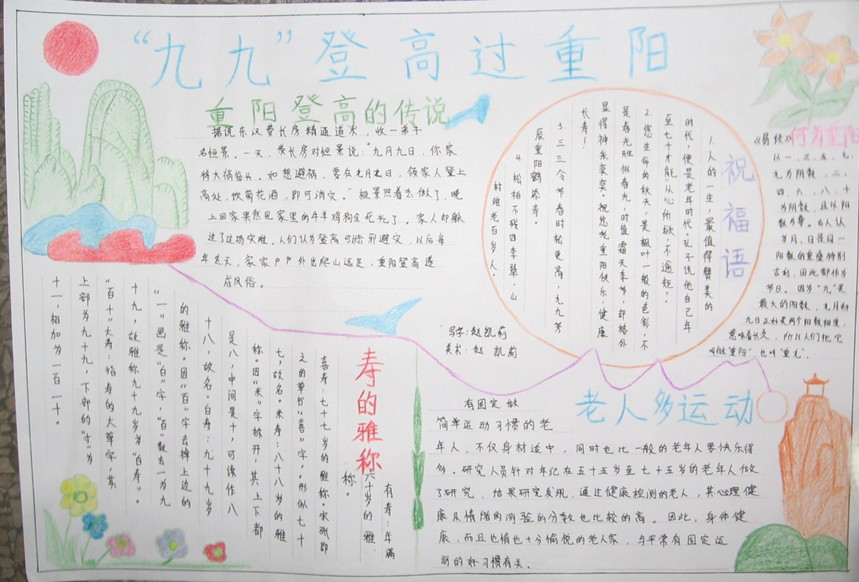 “九九”登高过重阳
重阳登高的传说
据说东汉费长房精通道术，收一弟子
名桓景。一天，费长房对桓景说：“九月九日，你家
将大祸临头。如想避祸，要在九月九日，领家人登上
高处，饮菊花酒，即可消灾。”桓景照着去做了，晚
上回家果然见家里的牛羊鸡狗全死光了。家人却躲
过了这场灾难。人们认为登高可以避灾，以后每
年这天，家家户户外出爬山远足，重阳登高遂
成风俗。
祝福语
1.人的一生，最值得赞美的
时代，便是老年时代，孔子说他自己年
至七十才能“从心所欲，不逾矩。”
2.您生命的秋天，是枫叶一般的色彩，不
是春光胜似春光，时值霜天季节，却格外
显得神采奕奕。祝您老重阳快乐，健康
长寿！
3.三三令节春时松更高，九九芳
辰重阳鹤添寿。
4.松柏不残四季翠，山
村难老百岁人。
何为重阳
《易经》
以一、三、五、七、
九为阳数，二、
四、六、八、十
为阴数，且以阳
数为尊。古人认
岁月，日是同一
阳数的重叠特别
吉利，因此都作为
节日。因为“九”是
最大的阳数，九月初
九日正好是两个阳数相重，
意味着长久，所以人们把它
叫做“重阳”也叫“重九”。
写字：赵凯莉
美术：赵凯莉
寿的雅称
有寿：年满
六十岁的雅
称。
喜寿：七十七岁的雅称。宋徽即
之的草书“喜”字，形似七十
七，故名。米寿：八十八岁的雅
称。因“米”字拆开，其上下都
是八，中间是十，可读作八
十八，故名。白寿：九十九岁
的雅称。因“百”字去掉上边的
“一”画是“白”字，“百”数去一为九
十九，故雅称九十九岁为“白寿”。
“百十”大寿：指寿的大草字，其
上部为九十九，下部的“寸”为
十一，相加为一百一十。
老人多运动
有固定做
简单运动习惯的老
年人，不仅身材适中，同时也比一般的老年人要快乐得
多。研究人员针对年纪在五十五岁至七十五岁的老年人做
了研究，结果研究发现，通过健康检测的老人，其心理健
康及情绪的测验的分数也比较的高。因此，身体健
康，而且也情也十分愉悦的老人家，与平常有固定运
动的好习惯有关。